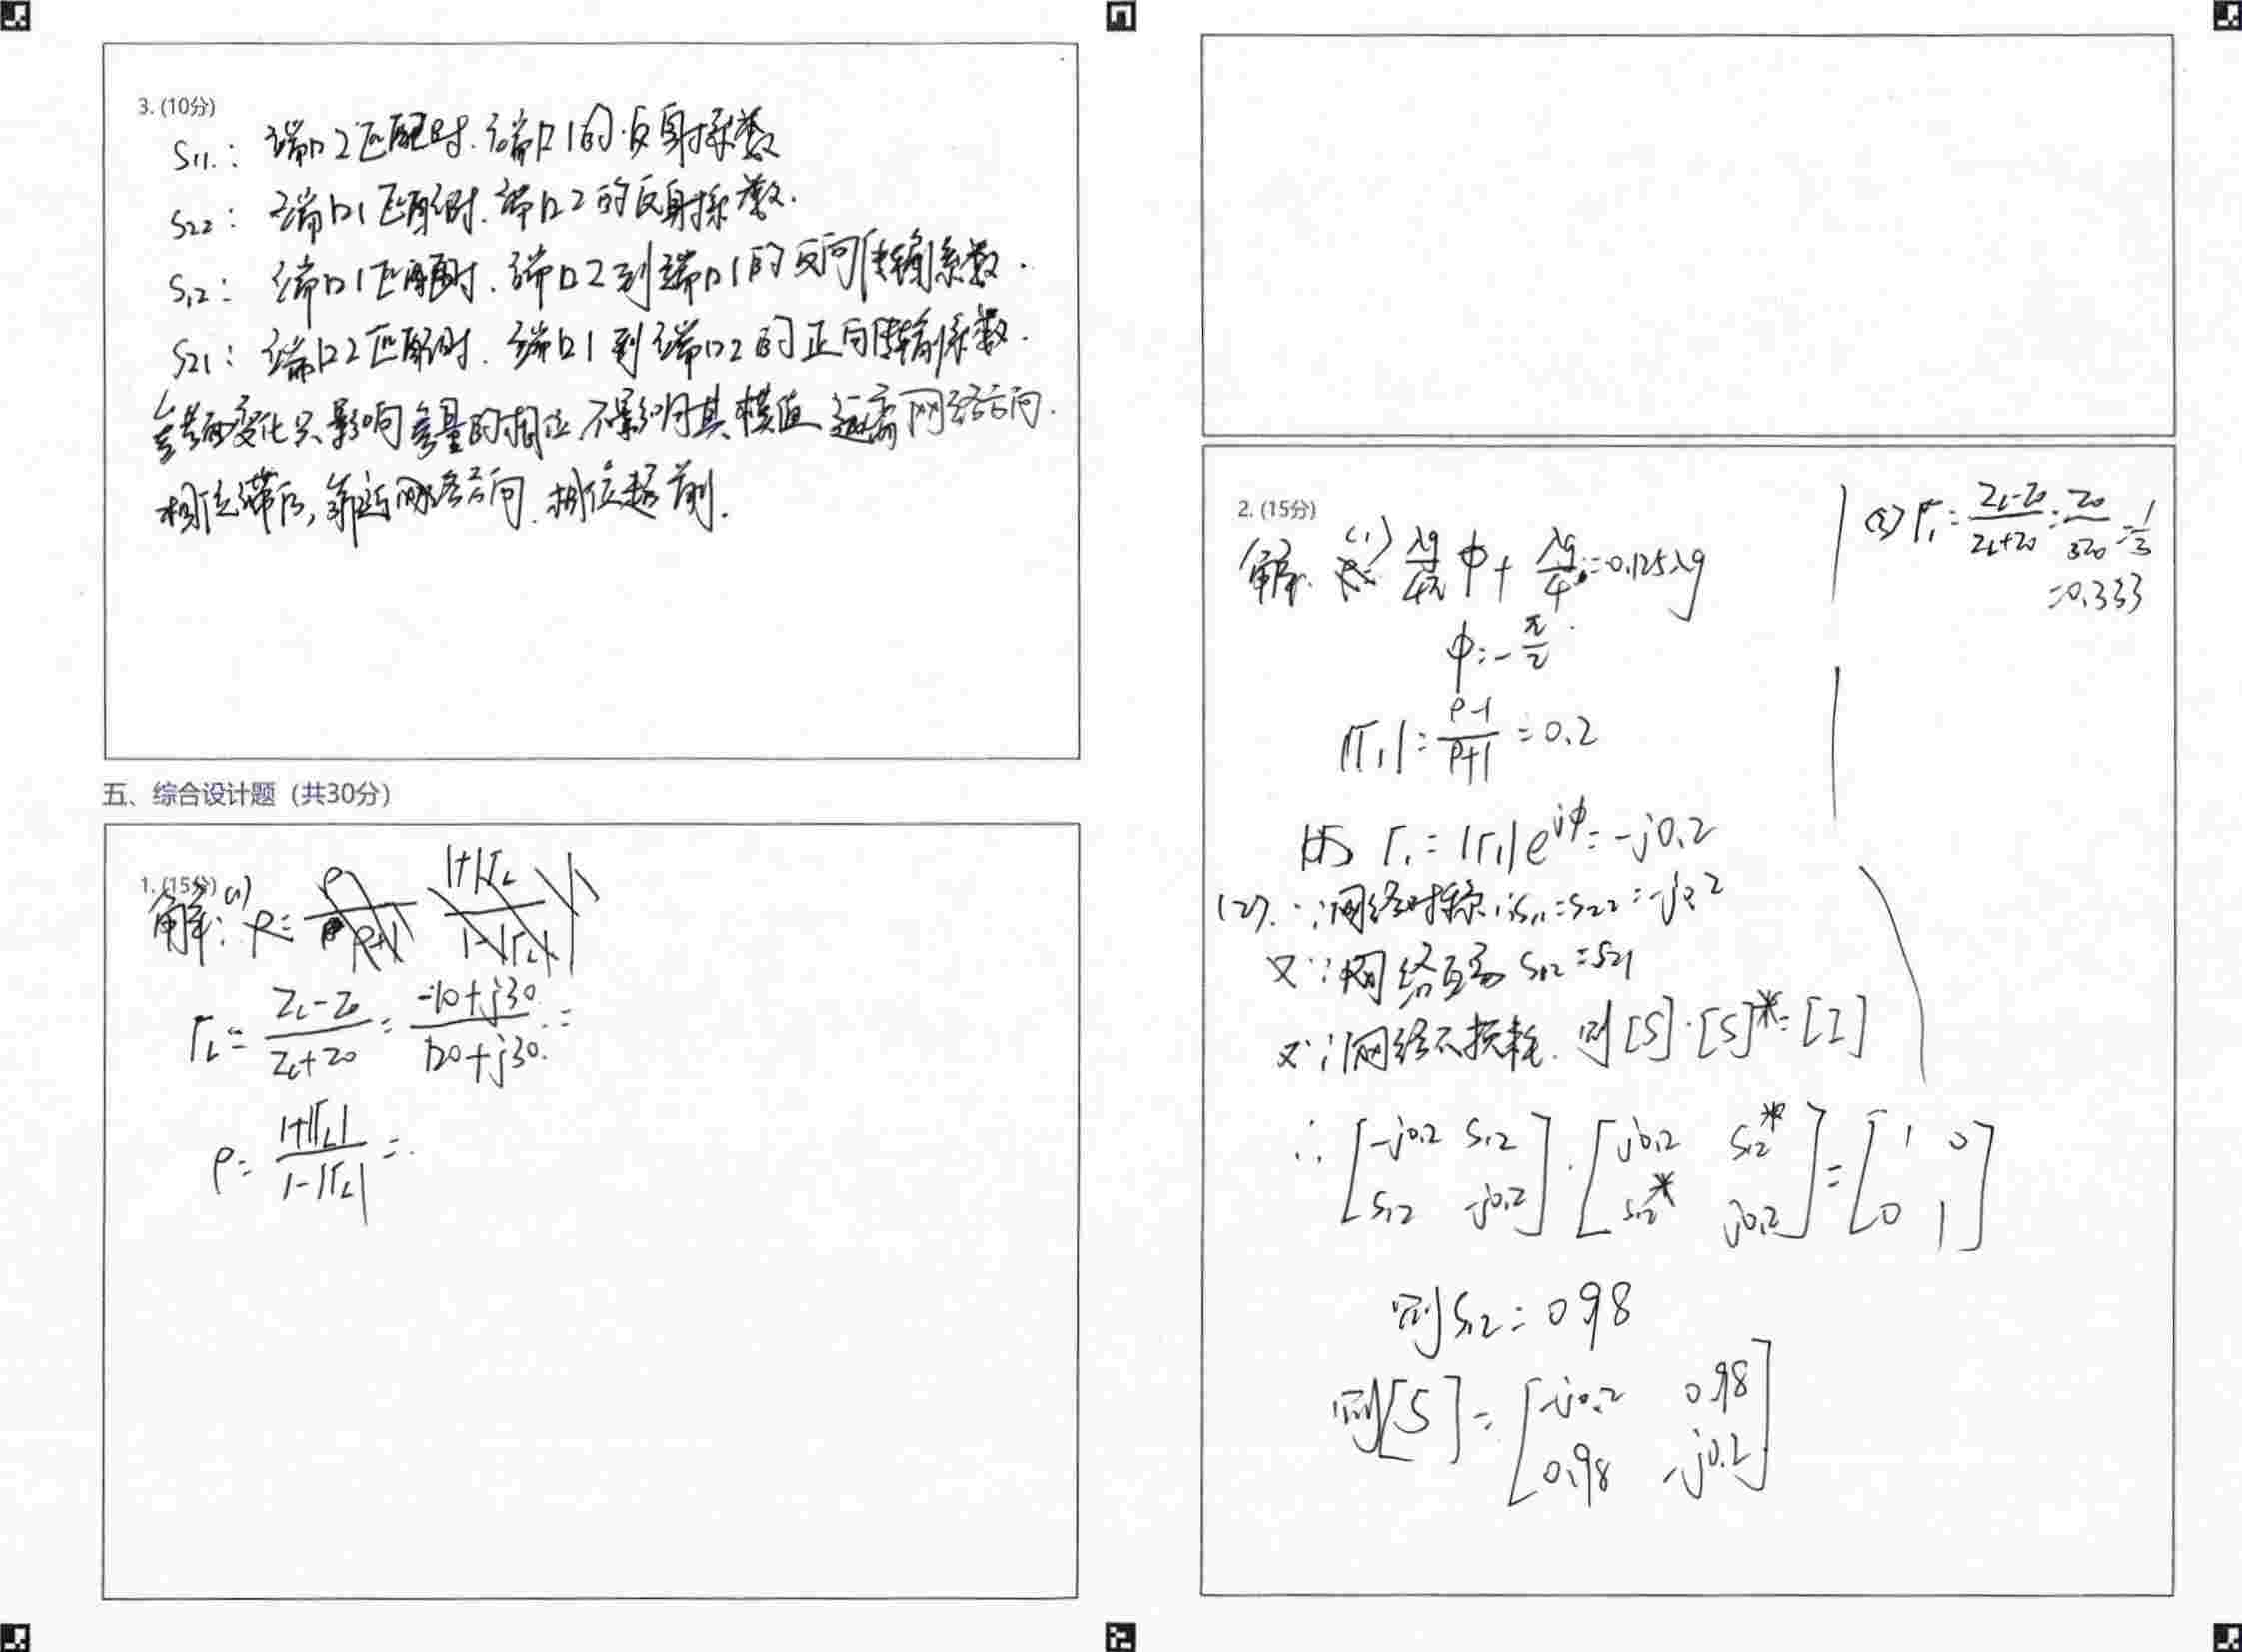 3. (10分)
S11: 端口2匹配时.端口1的反射系数
S22: 端口1匹配时.端口2的反射系数.
S12: 端口1匹配时.端口2到端口1的反向传输系数.
S21: 端口2匹配时.端口1到端口2的正向传输系数.
参考面变化只影响参量的相位,不影响其模值,远离网络方向.
相位滞后,靠近网络方向.相位超前.
五、综合设计题(共30分)
1. (15分)
解: (1) ρ=
ΓL = (ZL-Z0)/(ZL+Z0) = (-10+j30)/(120+j30) =
ρ = (1+|ΓL|)/(1-|ΓL|) =
2. (15分)
解. (1) λg/4π φ + λg/4 = 0.125λg
φ = -π/2
|Γ1| = (ρ-1)/(ρ+1) = 0.2
故 Γ1 = |Γ1|e^{jφ} = -j0.2
(2). ∵网络对称 ∴S11=S22=-j0.2
又∵网络互易 S12=S21
又∵网络无损耗. 则[S]·[S]*=[I]
∴ [-j0.2 S12; S12 -j0.2]·[j0.2 S12*; S12* j0.2] = [1 0; 0 1]
则S12=0.98
则[S] = [-j0.2 0.98; 0.98 -j0.2]
(3) Γ1 = (ZL-Z0)/(ZL+Z0) = Z0/3Z0 = 1/3
=0.333